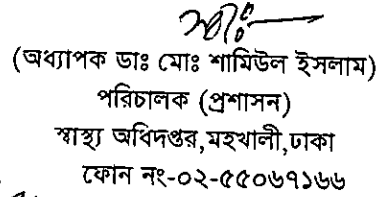 (অধ্যাপক ডাঃ মোঃ শামিউল ইসলাম)
পরিচালক (প্রশাসন)
স্বাস্থ্য অধিদপ্তর,মহখালী,ঢাকা
ফোন নং-০২-৫৫০৬৭১৬৬